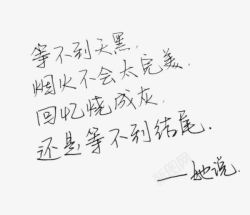 等不到天黑.
烟火不会太完美.
回忆烧成灰.
还是等不到结尾.
——她说.